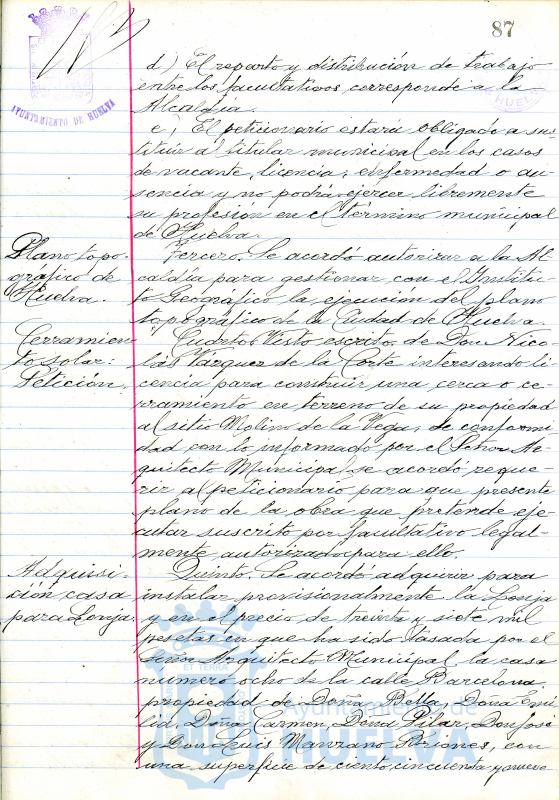 87
AYUNTAMIENTO DE HUELVA
HUELVA
d) El reparto y distribución de trabajo
entre los facultativos corresponde a la
Alcaldía.
e) El peticionario estará obligado a sus-
tituir al titular municipal en los casos
de vacante, licencia, enfermedad o au-
sencia y no podrá ejercer libremente
su profesión en el término municipal
de Huelva.
Plano topo-
gráfico de
Huelva.
Tercero. Se acordó autorizar a la Al-
caldía para gestionar con el Institu-
to Geográfico la ejecución del plano
topográfico de la Ciudad de Huelva.
Cerramien-
to solar:
Petición.
Cuarto. Visto escrito de Don Nico-
lás Vázquez de la Corte interesando li-
cencia para construir una cerca o ce-
rramiento en terreno de su propiedad
al sitio Molino de la Vega, de conformi-
dad con lo informado por el Señor Ar-
quitecto Municipal se acordó reque-
rir al peticionario para que presente
plano de la obra que pretende eje-
cutar suscrito por facultativo legal-
mente autorizado para ello.
Adquisi-
ción casa
para Lonja.
Quinto. Se acordó adquirir para
instalar provisionalmente la Lonja
y en el precio de treinta y siete mil
pesetas en que ha sido tasada por el
Señor Arquitecto Municipal la casa
número ocho de la calle Barcelona,
propiedad de Doña Bella, Doña Emi-
lia, Doña Carmen, Doña Pilar, Don José
y Don Luis Manzano Briones, con
una superficie de ciento cincuenta y nueve
Ayuntamiento de
HUELVA